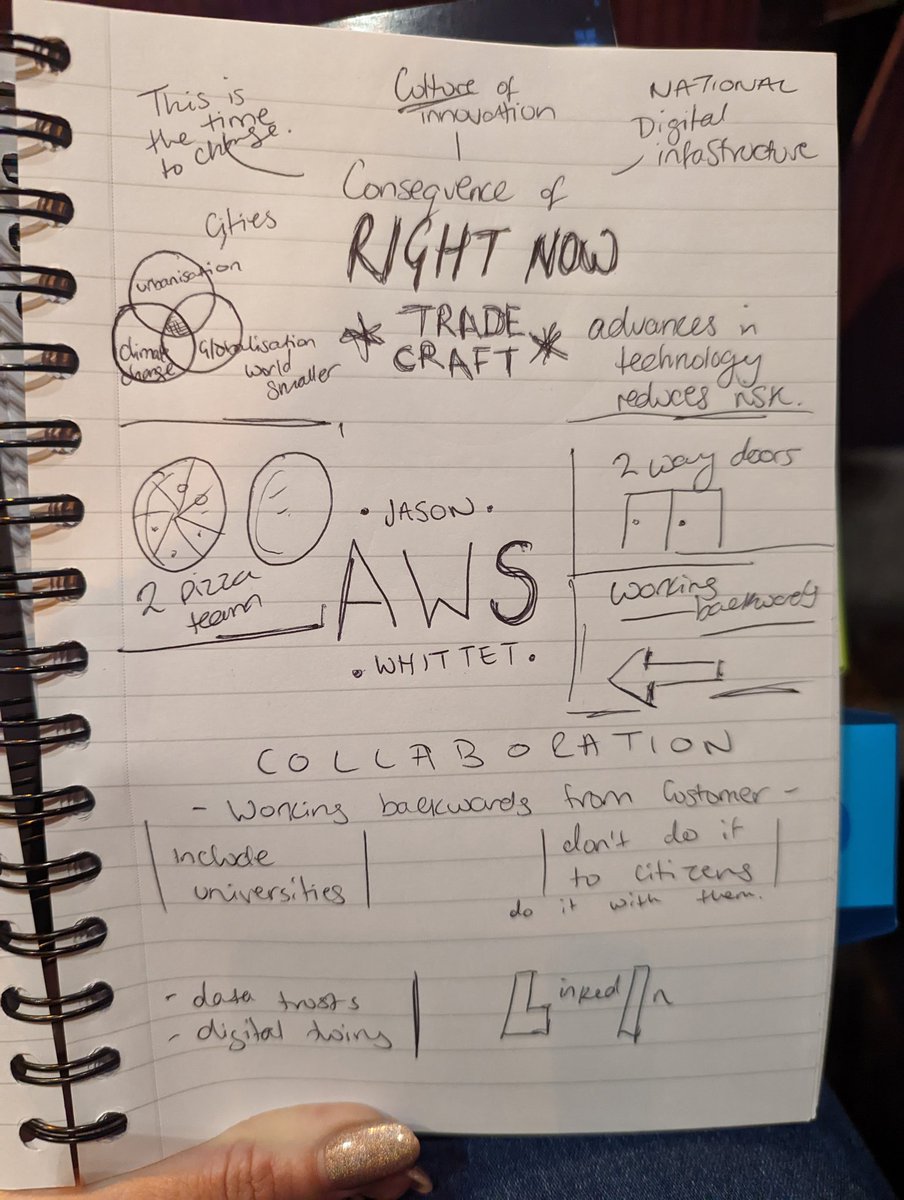 This is
the time
to change.
Culture of
innovation
NATIONAL
Digital
infastructure
Consequence of
RIGHT NOW
Cities
urbanisation
climate
change
Globalisation
world
smaller
* TRADE *
CRAFT
advances in
technology
reduces risk.
2 pizza
team
• JASON •
AWS
• WHITTET •
2 way doors
working
backwards
COLLABORATION
- Working backwards from Customer -
include
universities
don't do it
to citizens
do it with them.
- data trusts
- digital twins
Linked In